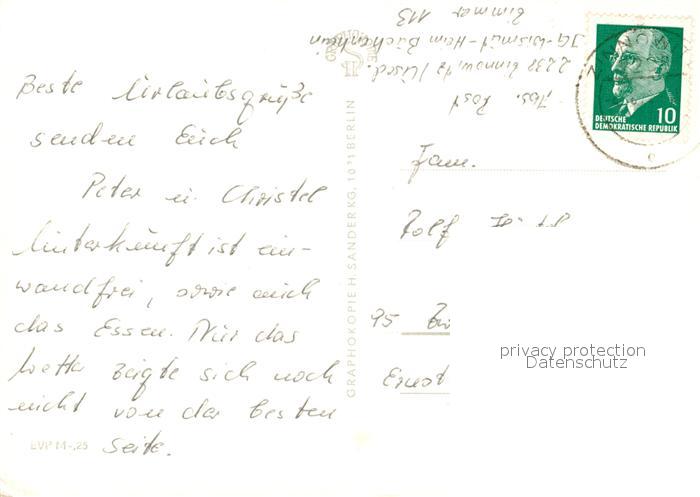 Beste Urlaubsgrüße
senden Euch
Peter u. Christel
Unterkunft ist ein-
wandfrei, sowie auch
das Essen. Nur das
Wetter zeigte sich noch
nicht von der besten
Seite.
EVP M -,25
GRAPHOKOPIE H. SANDER KG, BERLIN
Abs. Post
2238 Zinnowitz / Used.
IG-Wismut-Heim
Zimmer 113
DEUTSCHE
DEMOKRATISCHE REPUBLIK
10
Fam.
Rolf
95
Ernst
privacy protection
Datenschutz